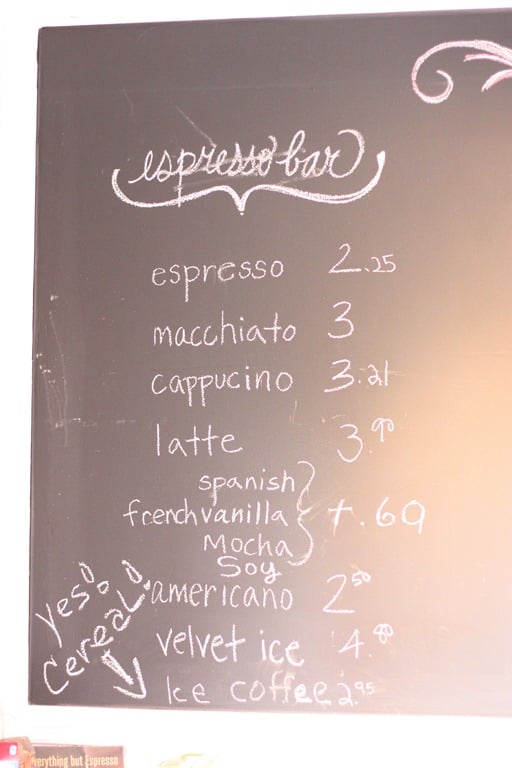 espresso bar
espresso 2.25
macchiato 3
cappucino 3.21
latte 3.90
spanish
french vanilla +.60
Mocha
Soy
americano 2.50
velvet ice 4.80
Ice coffee 2.95
yes!
Cereal!
everything but Espresso